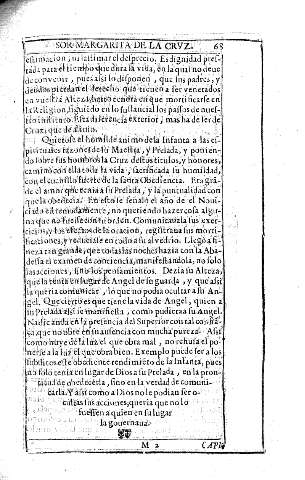 SOR MARGARITA DE LA CRVZ. 63
estimacion, ni lastimar el desprecio. Es dignidad pres-
tada para el tiempo que dura la vida, en la qual no deue
de conuenir, pues assi lo disponen, que los padres, y
deudos pierdan el derecho que tienen a ser venerados
en vuestra Alteza, tendra en que mortificarse en
la Religion, siguiendo en lo substancial los passos de nues-
tro instituto. Esta diferencia exterior, mas ha de ser de
Cruz, que de
Quietose el humilde animo de la Infanta a las es-
pirituales razones de la Maestra, y Prelada, y ponien-
do sobre sus hombros la Cruz destos titulos, y honores,
caminò con ella toda la vida, sacrificada su humildad,
con el cuchillo fuerte de la santa Obediencia. Era gran-
de el amor que tenia a su Prelada, y la puntualidad con
que la obedecia. En esto se señaló el año de el Noui-
ciado estremadamente, no queriendo hazer cosa algu-
na que no fuesse con su orden. Comunicauala sus exer-
cicios, y los afectos de la oracion, registraua sus morti-
ficaciones, y reduciase en todo a su aluedrio. Llegò a fi-
neza tan grande, que todas las noches hazia con la Aba-
dessa el examen de conciencia, manifestandola, no solo
las acciones, sino los pensamientos. Dezia su Alteza,
que la tenia en lugar de Angel de su guarda, y que assi
la queria comunicar, lo que no podia ocultar a su An-
gel. Que cierto es que tiene la vida de Angel, quien a
su Prelada assi se manifiesta, como pudiera a su Angel.
Nadie anda en la presencia del Superior con tal
que no obre en su ausencia con mucha pureza. Assi
como huye de la luz el que obra mal, no rehusa el po-
nerse a la luz el que obra bien. Exemplo puede ser a los
subditos este obediente rendimiento de la Infanta, pues
no solo tenia en lugar de Dios a su Prelada, en la pron-
titud de obedecerla, sino en la verdad de comuni-
carla. Y assi como a Dios no le podian ser o-
cultas sus acciones, queria que no lo
fuessen a quien en su lugar
la gouernaua.
M 2 CAPI-